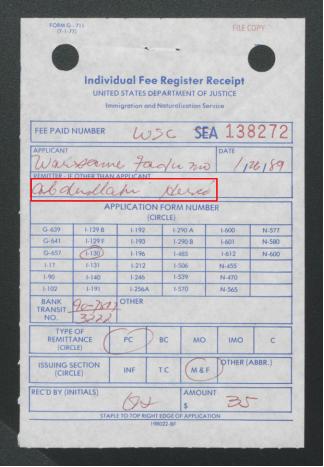 FORM G - 711
(7-1-77)
FILE COPY
Individual Fee Register Receipt
UNITED STATES DEPARTMENT OF JUSTICE
Immigration and Naturalization Service
FEE PAID NUMBER WSC SEA 138272
APPLICANT DATE
Warsame Fadumo 1/26/89
REMITTER - IF OTHER THAN APPLICANT
Abdullahi
APPLICATION FORM NUMBER
(CIRCLE)
G-639 I-129 B I-192 I-290 A I-600 N-577
G-641 I-129 F I-193 I-290 B I-601 N-580
G-657 I-130 I-196 I-485 I-612 N-600
I-17 I-131 I-212 I-506 N-455
I-90 I-140 I-246 I-539 N-470
I-102 I-191 I-256A I-570 N-565
BANK OTHER
TRANSIT
NO. 3222
TYPE OF
REMITTANCE PC BC MO IMO C
(CIRCLE)
ISSUING SECTION INF T C M & F OTHER (ABBR.)
(CIRCLE)
REC'D BY (INITIALS) AMOUNT
$ 35
STAPLE TO TOP RIGHT EDGE OF APPLICATION